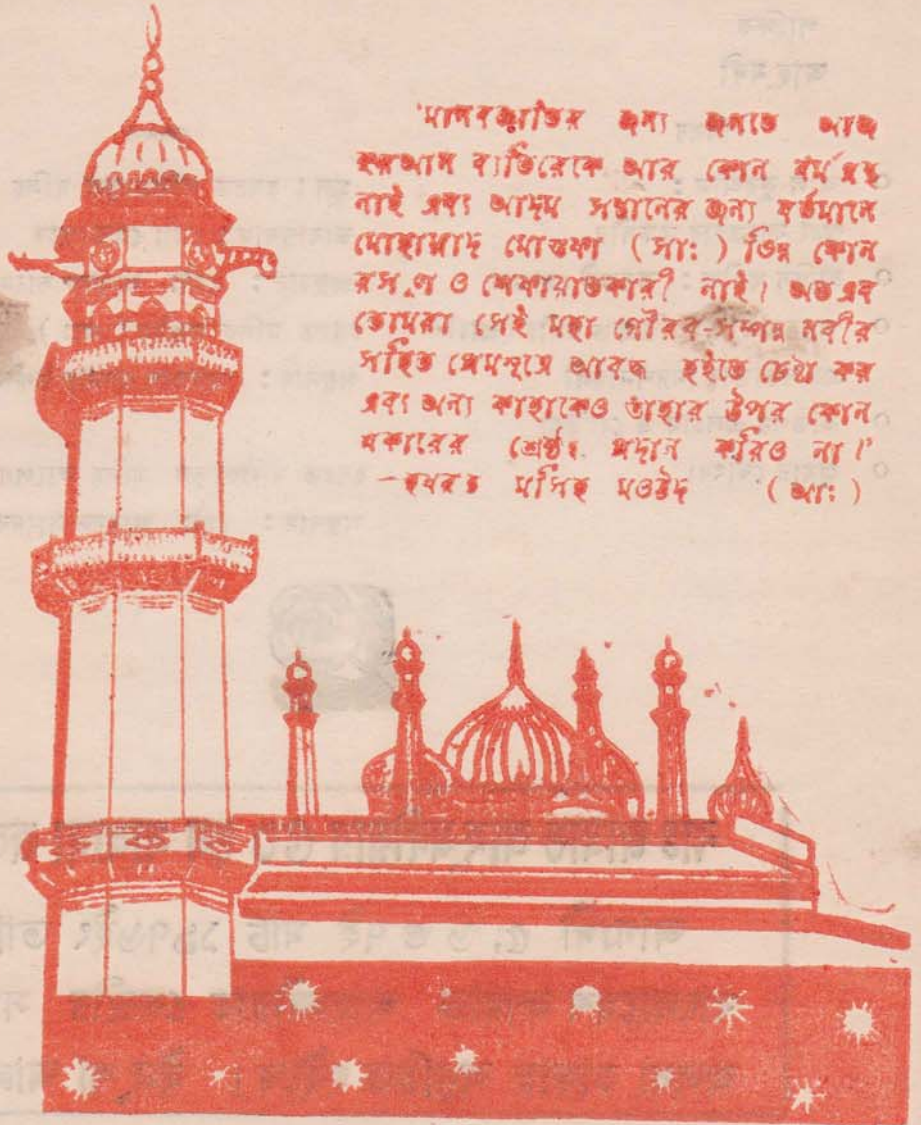 'মানবজাতির জন্য জগতে আজ
কুরআন ব্যতিরেকে আর কোন ধর্ম গ্রন্থ
নাই এবং আদম সন্তানের জন্য বর্তমানে
মোহাম্মাদ মোস্তফা (সা:) ভিন্ন কোন
রসূল ও শেফায়াতকারী নাই। অতএব
তোমরা সেই মহা গৌরব-সম্পন্ন নবীর
সহিত প্রেমসূত্রে আবদ্ধ হইতে চেষ্টা কর
এবং অন্য কাহাকেও তাহার উপর কোন
প্রকারের শ্রেষ্ঠত্ব প্রদান করিও না।'
—হযরত মসিহ মওউদ (আ:)